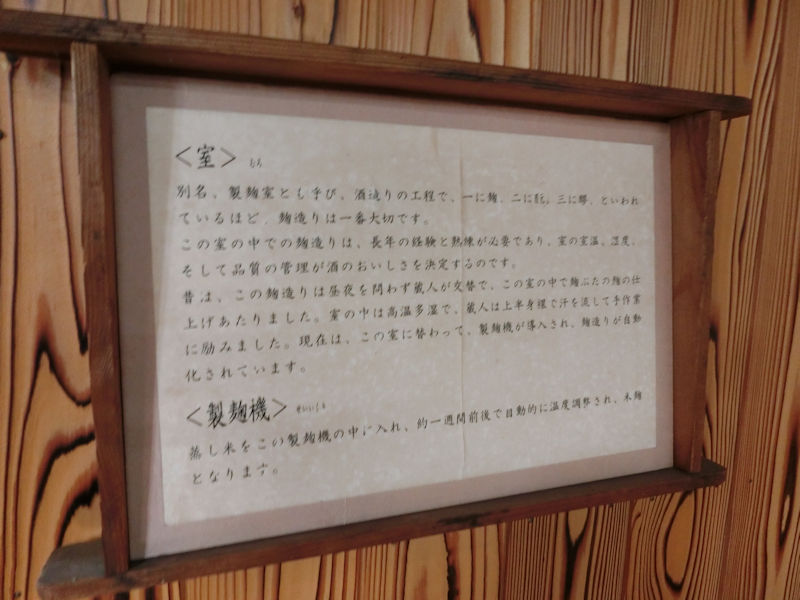 ＜室＞ むろ
別名、製麹室とも呼び、酒造りの工程で、一に麹、二に酛、三に醪、といわれ
ているほど、麹造りは一番大切です。
この室の中での麹造りは、長年の経験と熟練が必要であり、室の室温、湿度、
そして品質の管理が酒のおいしさを決定するのです。
昔は、この麹造りは昼夜を問わず蔵人が交替で、この室の中で麹ぶたの麹の仕
上げあたりました。室の中は高温多湿で、蔵人は上半身裸で汗を流して手作業
に励みました。現在は、この室に替わって、製麹機が導入され、麹造りが自動
化されています。
＜製麹機＞
蒸し米をこの製麹機の中に入れ、約一週間前後で自動的に温度調整され、米麹
となります。